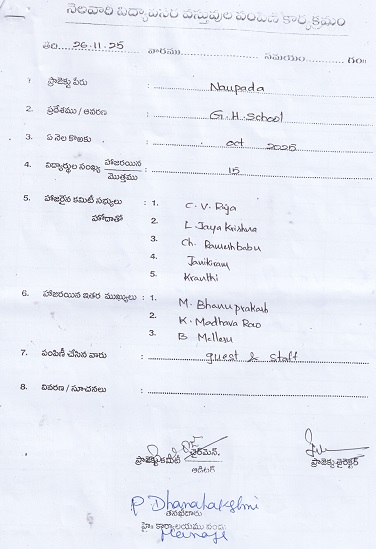 నెలవారి విద్యావసర వస్తువుల పంపిణి కార్యక్రమం
తేది. 26.11.25 వారము సమయం గం॥
1. ప్రాజెక్టు పేరు : Naupada
2. ప్రదేశము / ఆవరణ : G.H. School
3. ఏ నెల కొఱకు : oct 2025
4. విద్యార్థుల సంఖ్య హాజరయిన / మొత్తము : 15
5. హాజరైన కమిటీ సభ్యులు : 1. C. V. Raja
హోదాతో 2. L. Jaya Krishna
3. Ch. Ramesh babu
4. Janikiram
5. Kranthi
6. హాజరయిన ఇతర ముఖ్యులు : 1. M. Bhanu prakash
2. K. Madhava Rao
3. B Mallesu
7. పంపిణీ చేసిన వారు : guest & staff
8. వివరణ / సూచనలు :
ప్రాజెక్టు కమిటీ చైర్‌మెన్. ప్రాజెక్టు డైరెక్టర్
ఆడిటర్
P Dhanalakshmi
తనఖీదారు
హై॥ కార్యాలయము నందు